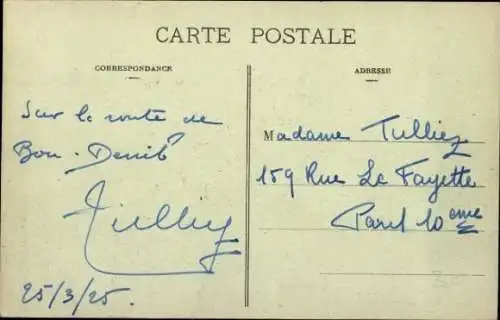 CARTE POSTALE
CORRESPONDANCE
Sur la route de
Bou-Denib
Tulliez
25/3/25.
ADRESSE
Madame Tulliez
159 Rue La Fayette
Paris 10eme